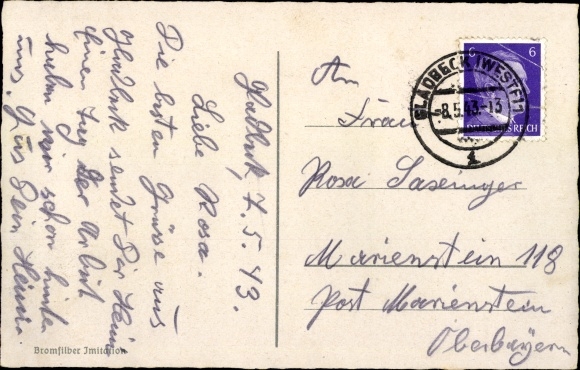 Gladbeck, 7.5.43.
Liebe Rosa.
Die besten Grüße aus
Gladbeck sendet Dir Heini
Einen Tag der Arbeit
haben wir schon hinter
uns. Gruß Dein Heini.
Bromsilber Imitation
An
Frau
Rosa Saseinger
Marienstein 118
Post Marienstein
Oberbayern
6 6
REICH
GLADBECK (WESTF) 1
-8.5.43-13
1